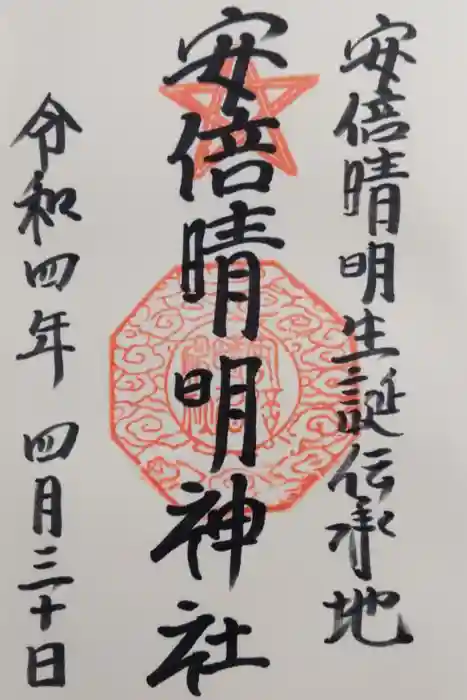 安倍晴明生誕伝承地
安倍晴明神社
令和四年 四月三十日